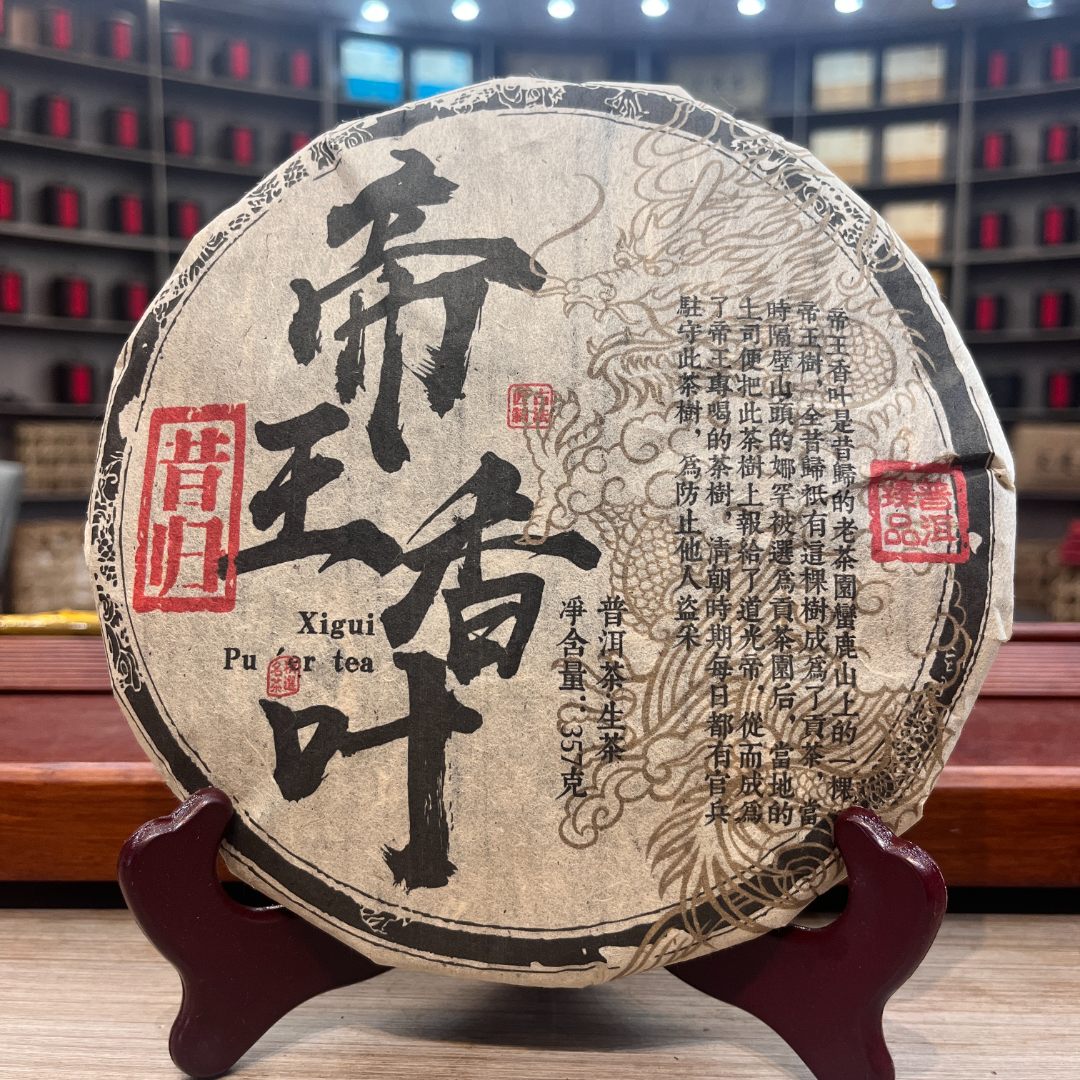 帝王香叶
昔归
Xigui
Pu er tea
普洱茶生茶
淨含量:357克
帝王香叶是昔歸的老茶園蠻鹿山上的一棵
帝王樹,全昔歸祇有這棵樹成爲了貢茶,當
時隔壁山頭的娜罕被選爲貢茶園后,當地的
土司便把此茶樹上報給了道光帝,從而成爲
了帝王專喝的茶樹,清朝時期每日都有官兵
駐守此茶樹,爲防止他人盗采
普洱
臻品